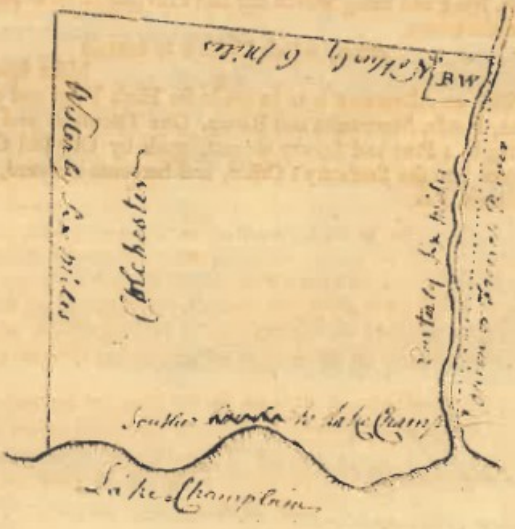 Northerly 6 Miles
BW
Westerly Six Miles
Colchester
Easterly Six Miles
Onion or French River
to Lake Champ
Lake Champlain